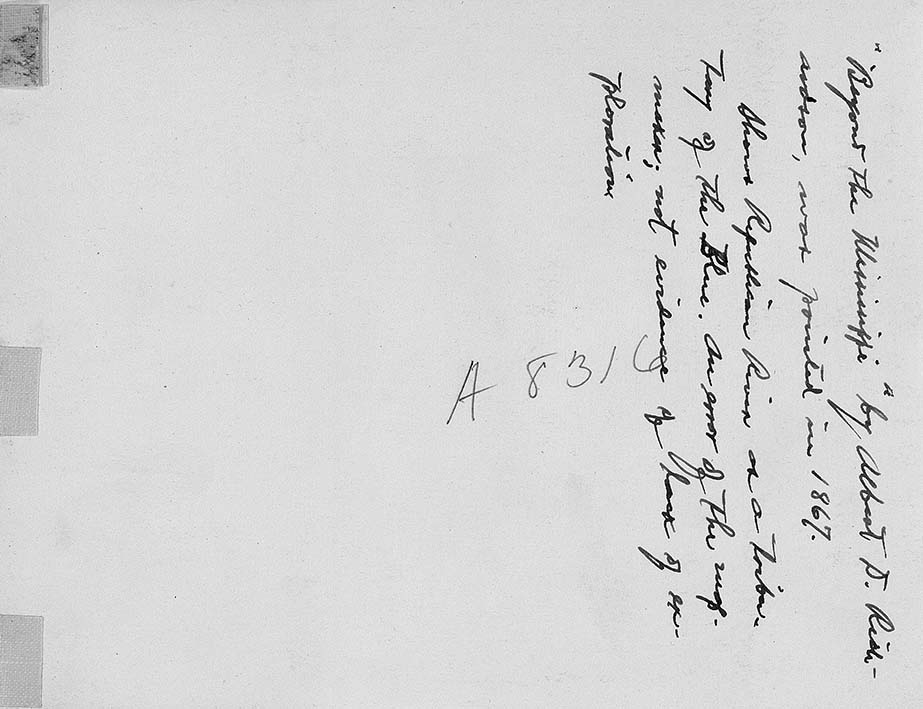 "Beyond the Mississippi" by Albert D. Rich-
ardson, was printed in 1867.
Shows Republican River as a tribu-
tary of the Blue. An error of the map-
maker; not evidence of lack of ex-
ploration
A 8316